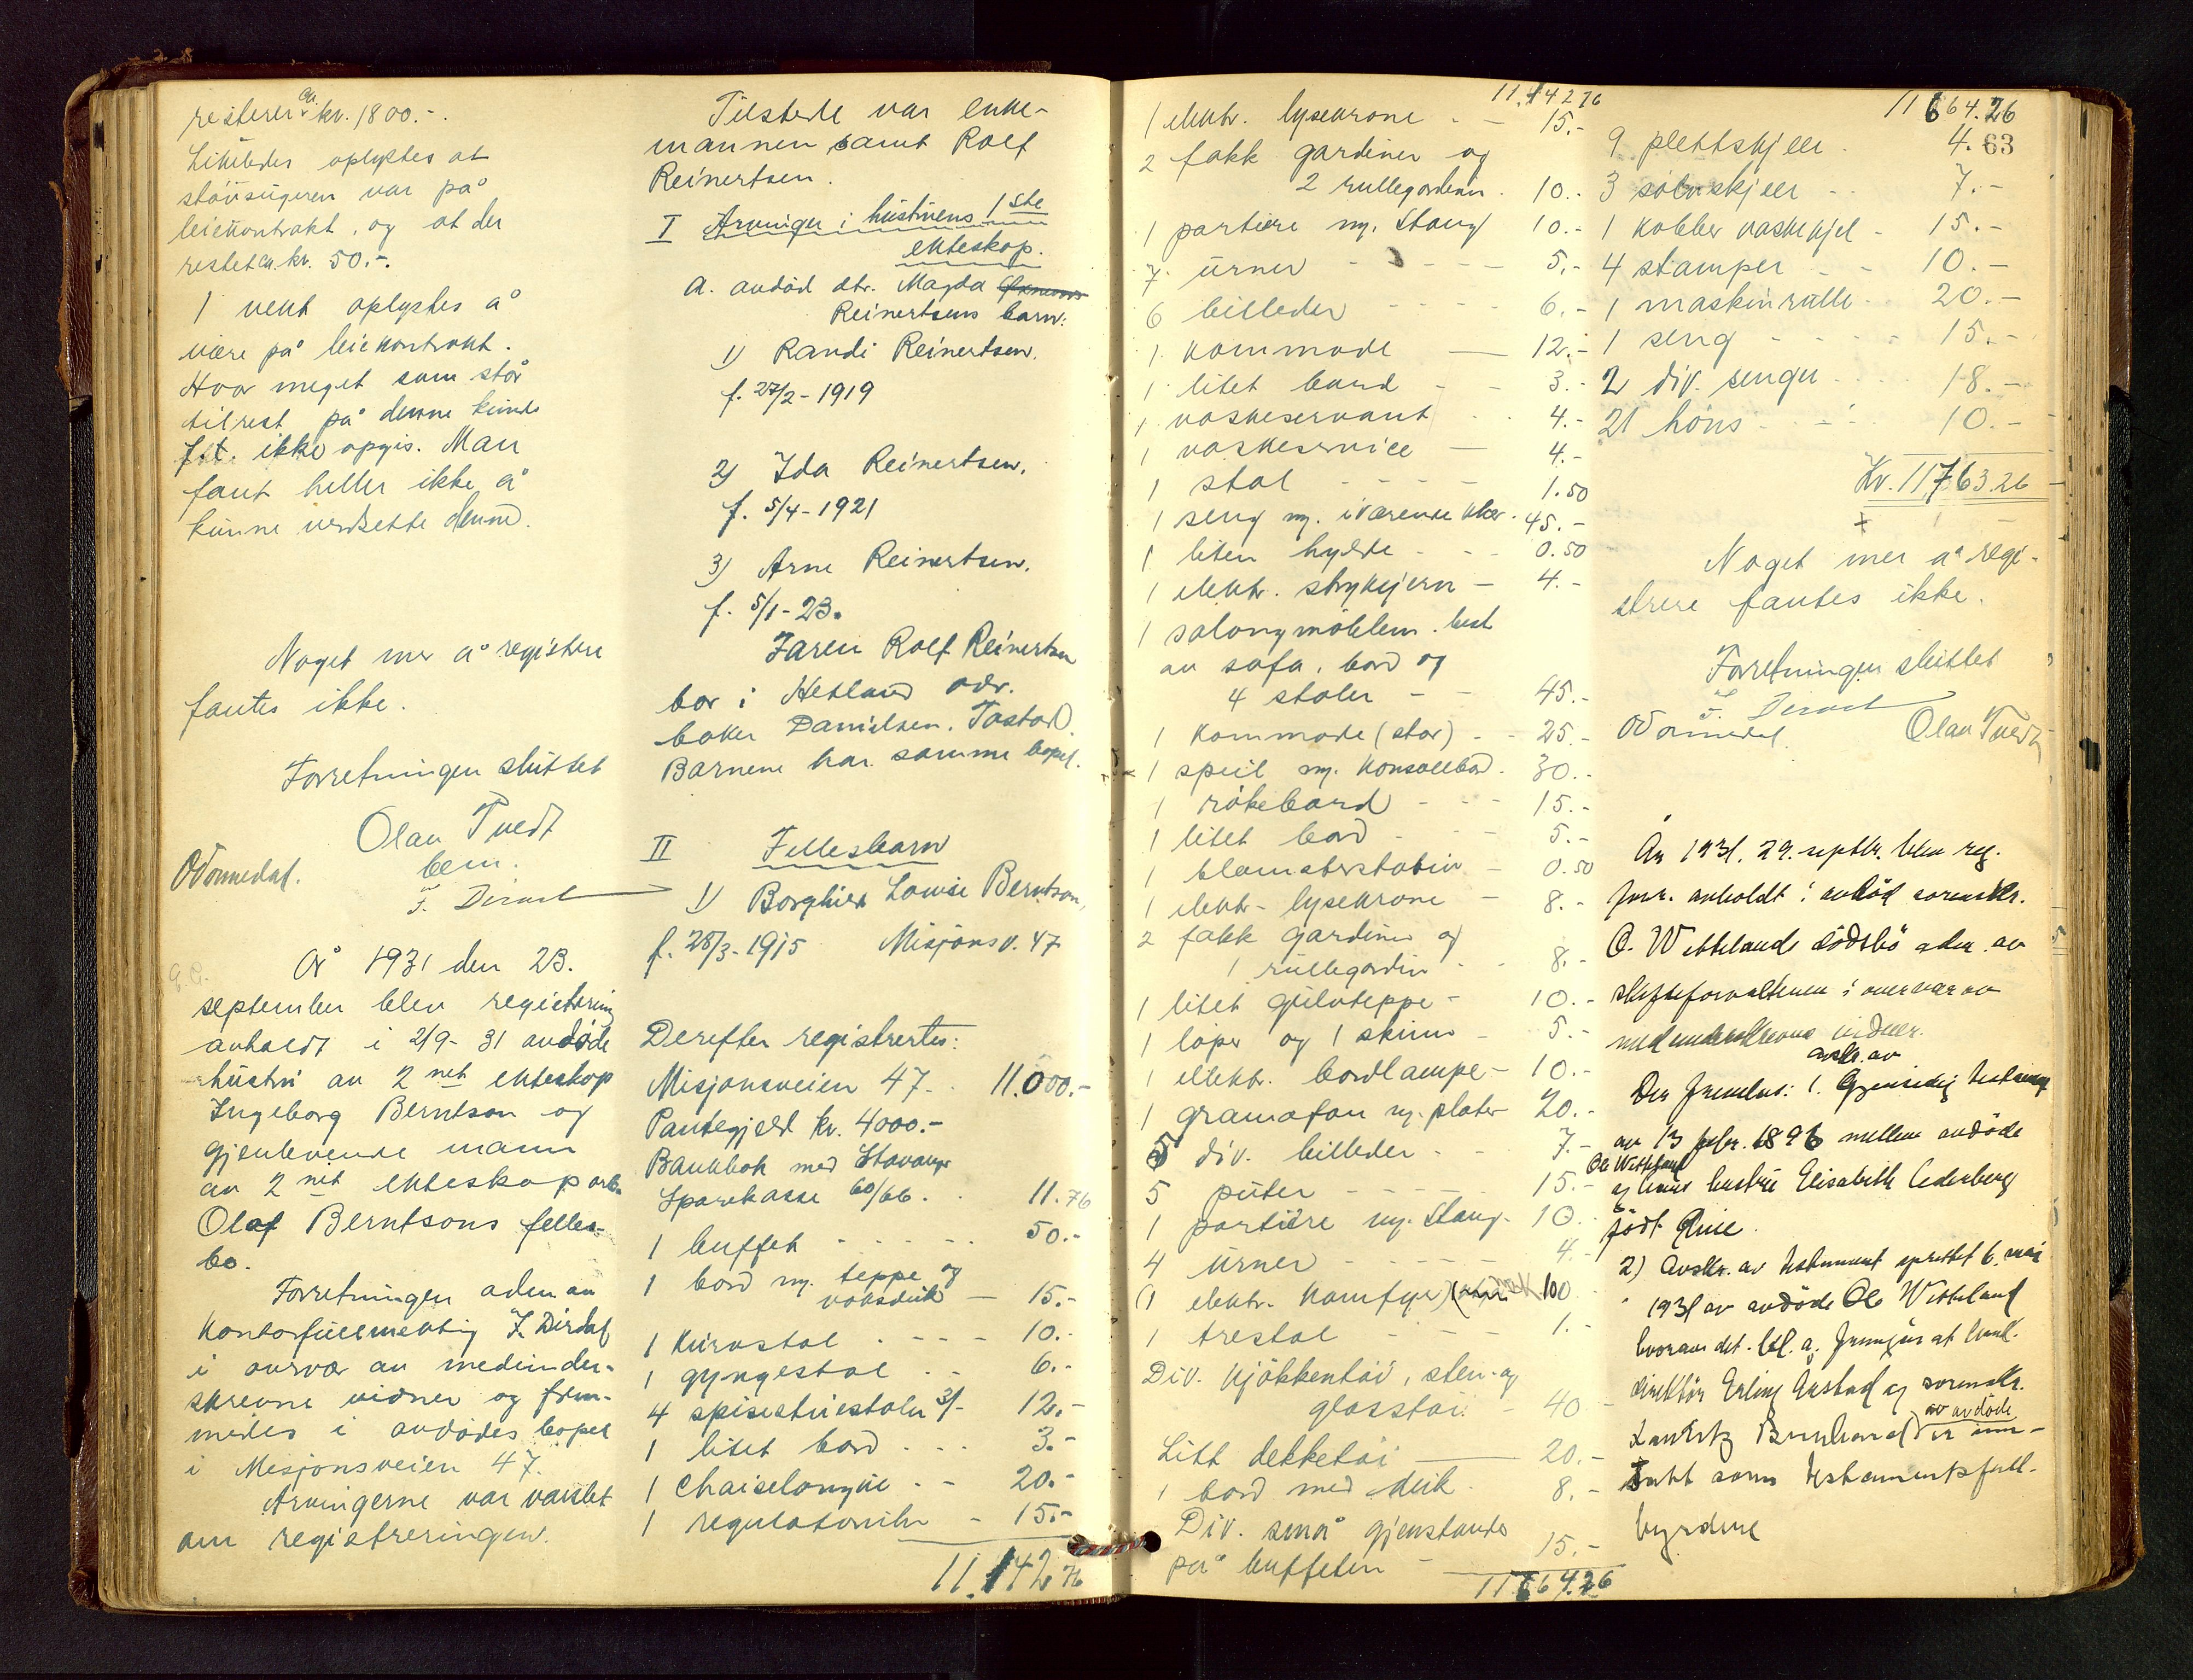 resterer ca. kr. 1800.-.
Likeledes oplystes at
støvsugeren var på
leiekontrakt, og at der
restet ca. kr. 50.-.
1 vekt oplystes å
være på leiekontrakt.
Hvor meget som står
tilrest på denne kunde
f.t. ikke opgis. Man
fant heller ikke å
kunne verdsette denne.
Noget mer å registrere
fantes ikke.
Forretningen sluttet
Olav Tvedt
bem.
O Vormedal.
F. Dirdal
År 1931 den 23.
september blev registrering
avholdt i 2/9-31 avdøde
hustru av 2net ekteskap
Ingeborg Berntson og
gjenlevende mann
av 2net ekteskap arb.
Olaf Berntsons felles-
bo.
Forretningen adm. av
kontorfullmektig F. Dirdal
i overvær av medunder-
skrevne vidner og frem-
møtes i avdødes bopel
i Misjonsveien 47.
Arvingerne var varslet
om registreringen.
Tilstede var enke-
mannen samt Rolf
Reinertsen.
I Arvinger i hustruens 1ste
ekteskap.
a. avdød dtr. Magda
Reinertsens barn:
1) Randi Reinertsen.
f. 27/2-1919
2) Ida Reinertsen.
f. 5/4-1921
3) Arne Reinertsen.
f. 5/1-23.
Faren Rolf Reinertsen
bor i Hetland adr.
baker Danielsen, Tastad.
Barnene har samme bopel.
II Fellesbarn
1) Borghild Louise Berntson,
f. 28/3-1915 Misjonsv. 47
Derefter registrertes:
Misjonsveien 47. 11.000.-
Pantegjeld kr. 4000.-
Bankbok med Stavanger
Sparekasse 60/66. 11.76
1 buffet - - - - - 50.-
1 bord m. teppe og
voksduk - 15.-
1 kurvstol - - - - 10.-
1 gyngestol - - 6.-
4 spisestuestoler 3/- 12.-
1 litet bord - - - 3.-
1 chaiselongue - - 20.-
1 regulatorur - 15.-
11.142.76
11.142.76
1 elektr. lysekrone - - 15.-
2 fakk gardiner og
2 rullegardiner. 10.-
1 portiere m. stang 10.-
7 urner - - - - 5.-
6 billeder - - - - 6.-
1 kommode - 12.-
1 litet bord - - 3.-
1 vaskeservant - - 4.-
1 vaskeservice - 4.-
1 stol - - - - 1.50
1 seng m. iværende klær. 45.-
1 liten hylde - - - 0.50
1 elektr. strykejern - 4.-
1 salongmøblem. best
av sofa, bord og
4 stoler - - 45.-
1 kommode (stor) - - 25.-
1 speil m. konsollbord. 30.-
1 røkebord - - - 15.-
1 litet bord - - 5.-
1 blomsterstativ - 0.50
1 elektr. lysekrone - 8.-
2 fakk gardiner og
1 rullegardin - - 8.-
1 litet gulvteppe - 10.-
1 løper og 1 skinn - 5.-
1 elektr. bordlampe - 10.-
1 gramofon m. plater 20.-
5 div. billeder - - 7.-
5 puter - - - - 15.-
1 portiere m. stang - 10.
4 urner - - - - 4.-
(1 elektr. komfyr) 100
1 trestol - - - 1.-
Div. kjøkkentøi, sten- og
glasstøi. - 40
Litt dekketøi - 20.-
1 bord med duk. 8.-
Div. små gjenstander
på buffeten - 15.-
11664.26
11664.26
63
9 plettskjeer. 4.
3 sølvskjeer - - 7.-
1 kobber vaskekjel - 15.-
4 stamper - - 10.-
1 maskinrulle - 20.-
1 seng - - - - 15.-
2 div. senger - - 18.-
21 høns - - - 10.-
Kr. 11763.26
+
Noget mer å regi-
strere fantes ikke.
Forretningen sluttet
F. Dirdal
O Vormedal. Olav Tvedt
År 1931, 29. septbr. blev reg.
forr. avholdt i avdød sorenskr.
O. Wetteland dødsbo adm. av
skifteforvalteren i overvær av
medunderskrevne vidner.
Der fremlas: 1. avskr. av Gjensidig testament
av 13 febr. 1896 mellem avdøde
Ole Wetteland
og hans hustru Elisabeth Cederberg
født
2) Avskr. av testament oprettet 6. mai
1931 av avdøde Ole Wetteland
hvorav det bl. a. fremgår at
direktør Erling og sorenskr.
av avdøde er inn-
satt som testamentsfull-
byrdere